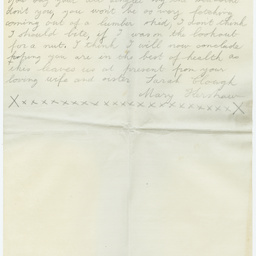 dont you, you wont be so very
coming out of a lumber shed, I dont think
I should bite, if I was on the lookout
for a nut. I think I will now conclude
hoping you are on the best of health as
this leaves us at present from your
loving wife and sister Sarah Clough
Mary
XxxxxxxxxxxxxxxxX